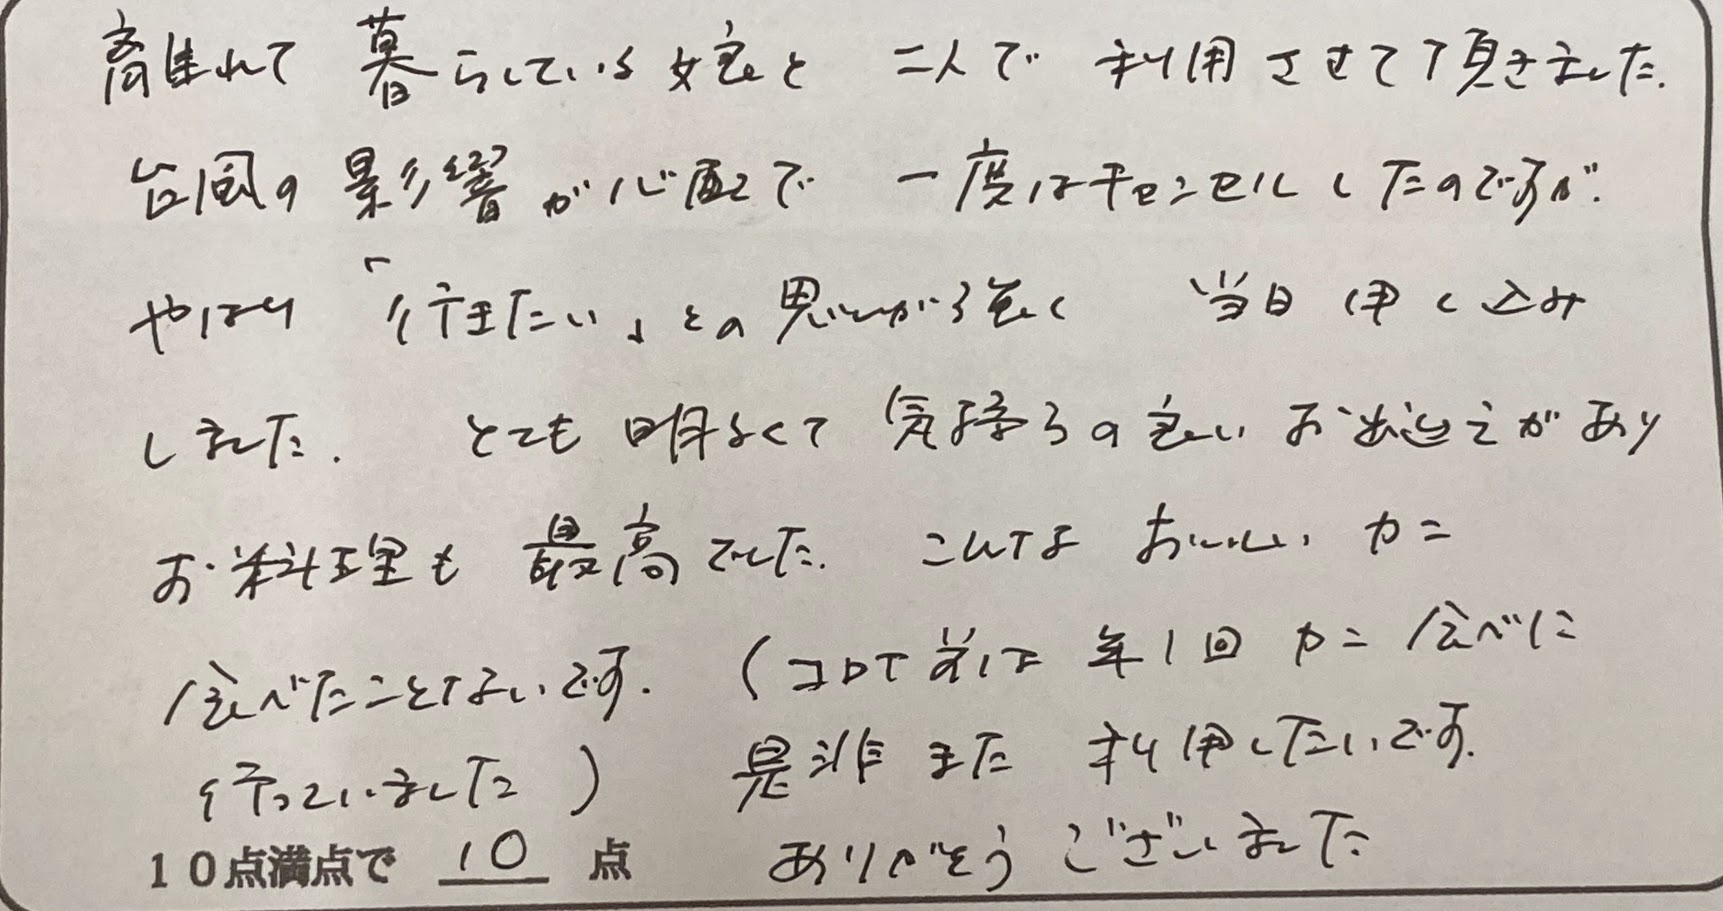 離れて暮らしている娘と 二人で 利用させて頂きました.
台風の影響が心配で 一度はキャンセルしたのですが.
やはり「行きたい」との思いが強く 当日申し込み
しました. とても明るくて気持ちの良いお出迎えがあり
お料理も最高でした. こんなおいしいカニ
食べたことないです. (コロナ前は年1回カニ食べに
行っていました) 是非また利用したいです.
10点満点で 10 点 ありがとうございました